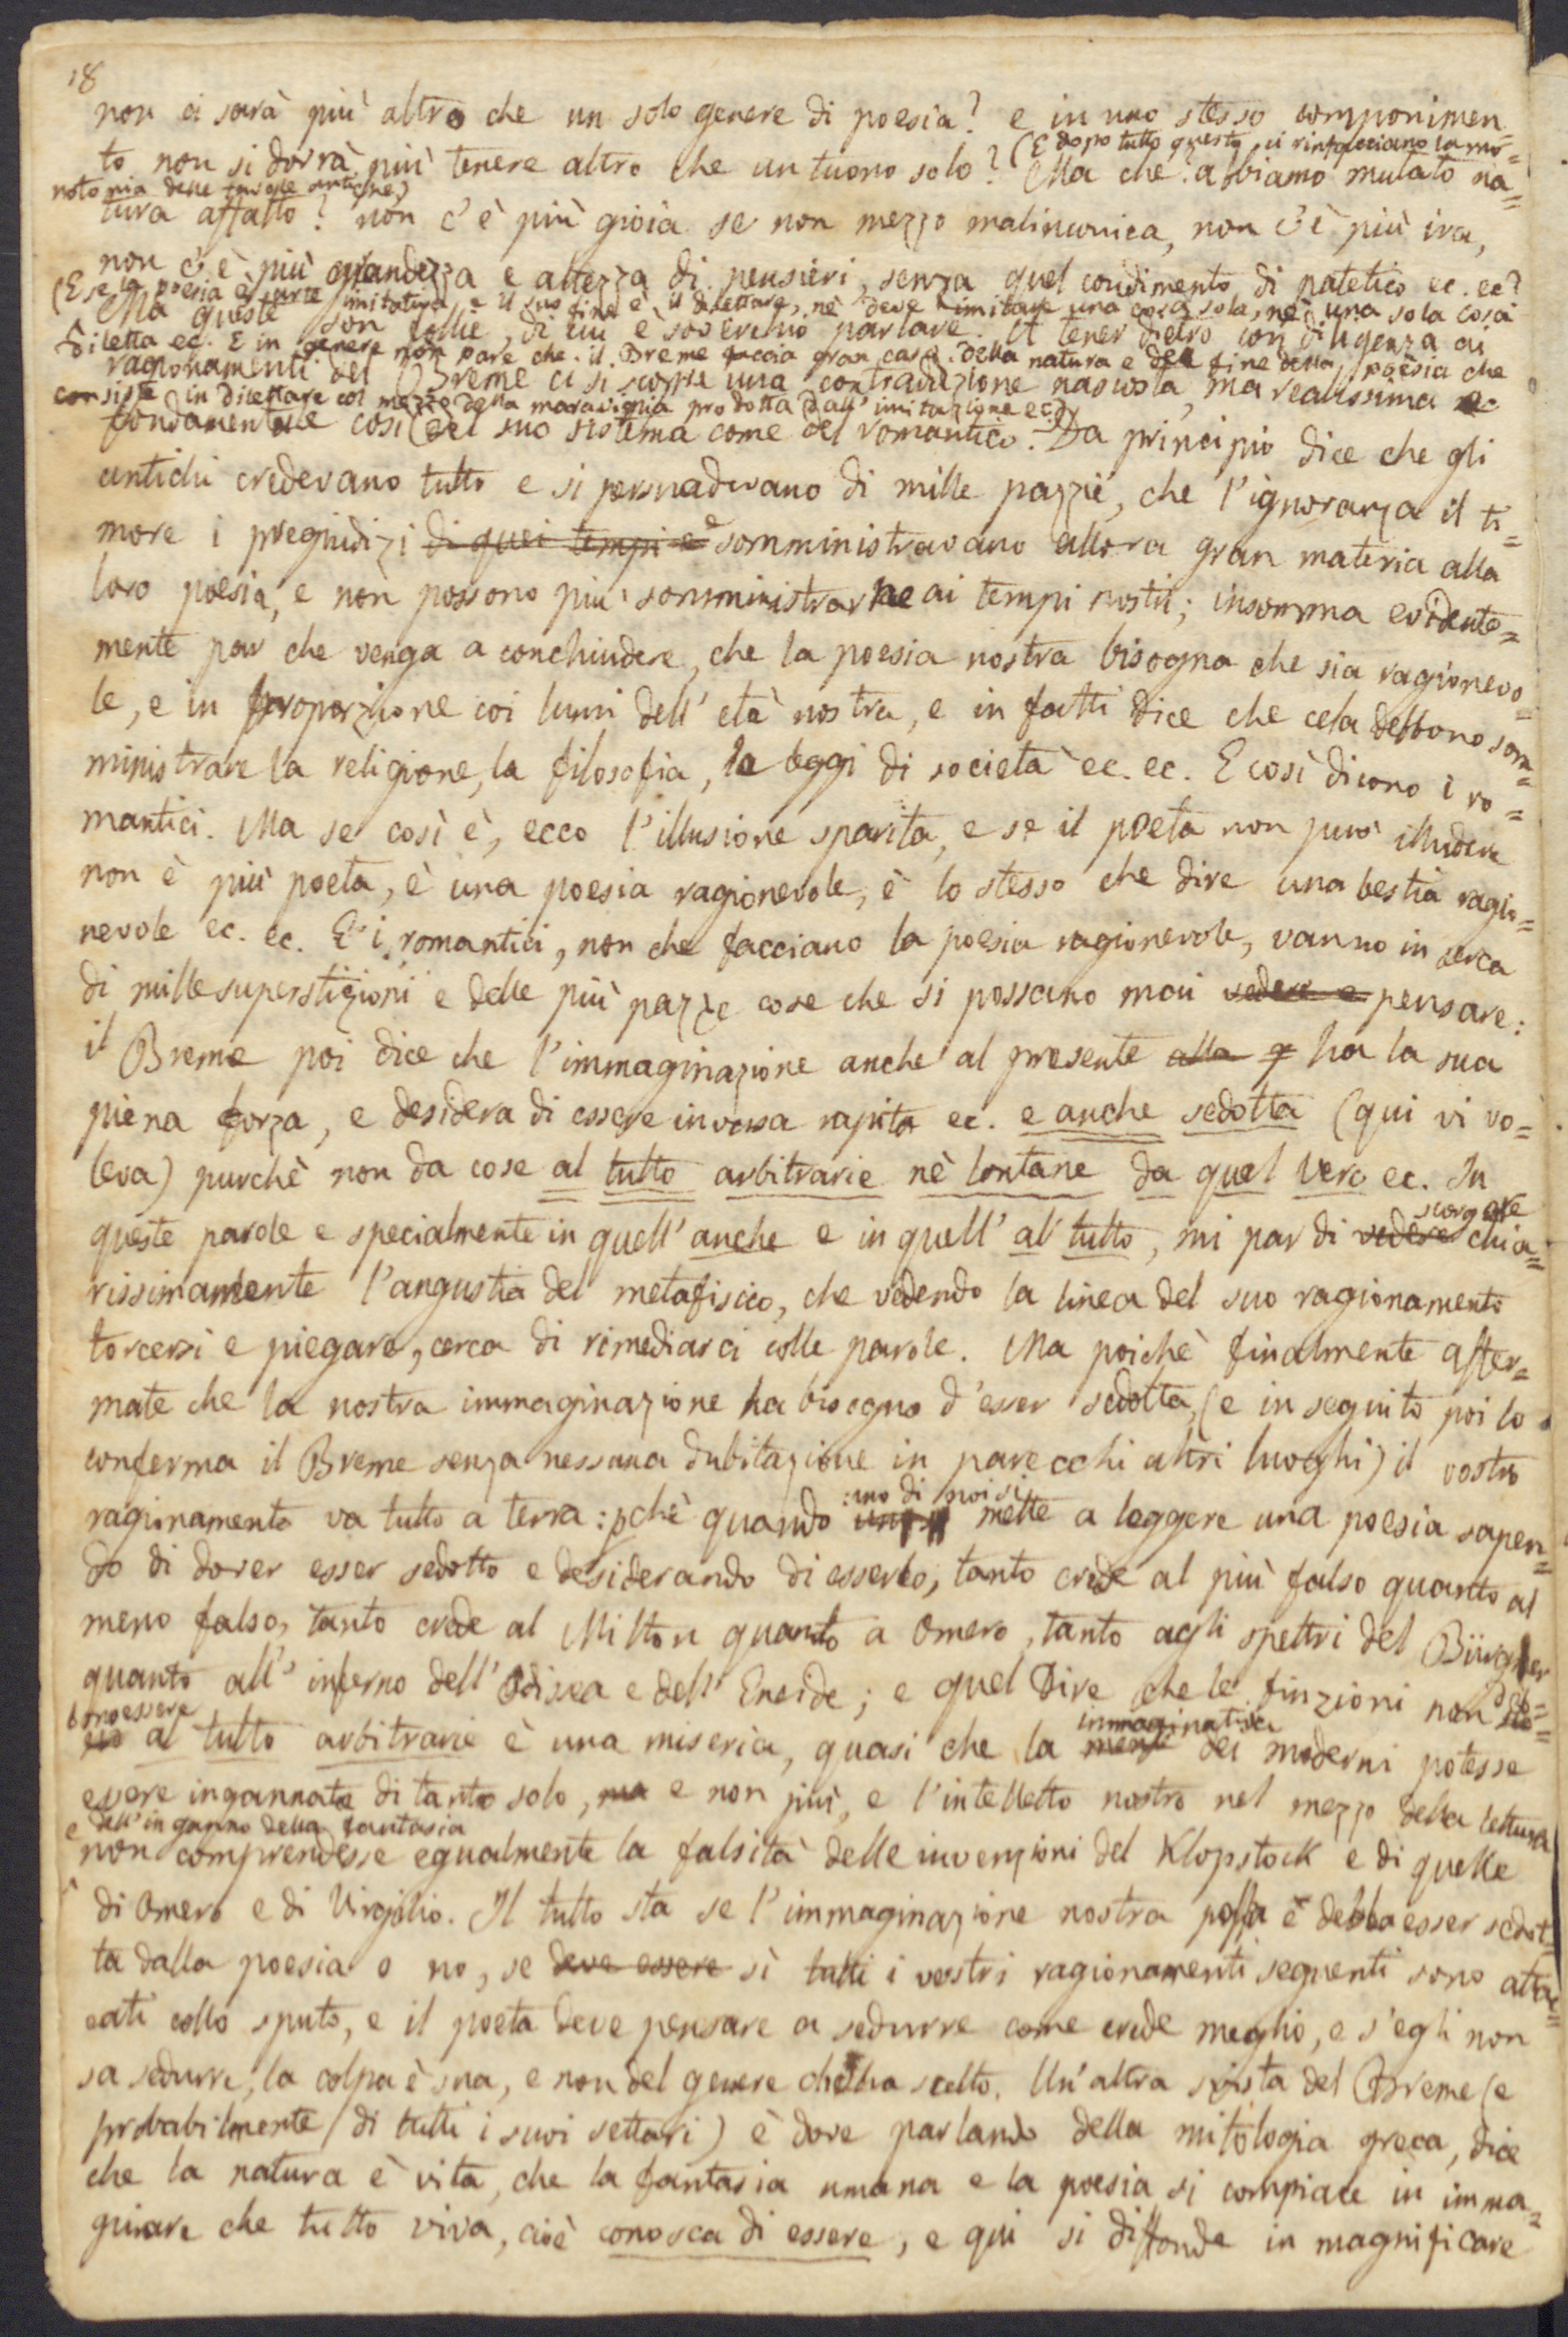 18
non ci sarà più altro che un solo genere di poesia? e in uno stesso componimen=
(E dopo tutto questo ci rinfacciano la mo=
to non si dovrà più tenere altro che un tuono solo? Ma che? abbiamo mutato na=
notonia delle favole antiche)
tura affatto? non c'è più gioia se non mezzo malinconica, non c'è più ira,
non c'è più grandezza e altezza di pensieri, senza quel condimento di patetico ec. ec?
(E se la poesia è arte imitativa e il suo fine è il dilettare, nè deve imitare una cosa sola, nè una sola cosa
Ma queste son follie, di cui è soverchio parlare. A tener dietro con diligenza ai
diletta ec. E in genere non pare che il Breme faccia gran caso della natura e del fine della poesia che
ragionamenti del Breme ci si scopre una contraddizione nascosta, ma realissima e
consiste in dilettare col mezzo della maraviglia prodotta dall'imitazione ec.)
fondamentale così del suo sistema come del romantico. Da principio dice che gli
antichi credevano tutto e si persuadevano di mille pazzie, che l'ignoranza il ti=
more i pregiudizi di quei tempi e somministravano allora gran materia alla
loro poesia, e non possono più somministrarne ai tempi nostri; insomma evidente=
mente par che venga a conchiudere, che la poesia nostra bisogna che sia ragionevo=
le, e in proporzione coi lumi dell'età nostra, e in fatti dice che ce la debbono som=
ministrare la religione, la filosofia, le leggi di società ec. ec. E così dicono i ro=
mantici. Ma se così è, ecco l'illusione sparita, e se il poeta non può illudere
non è più poeta, è una poesia ragionevole, è lo stesso che dire una bestia ragio=
nevole ec. ec. E i romantici, non che facciano la poesia ragionevole, vanno in cerca
di mille superstizioni e delle più pazze cose che si possano mai vedere e pensare:
il Breme poi dice che l'immaginazione anche al presente alla ha la sua
piena forza, e desidera di essere invasa rapita ec. e anche sedotta (qui vi vo=
leva) purchè non da cose al tutto arbitrarie nè lontane da quel vero ec. In
queste parole e specialmente in quell'anche e in quell'al tutto, mi par di vedere scorgere chia=
rissimamente l'angustia del metafisico, che vedendo la linea del suo ragionamento
torcersi e piegare, cerca di rimediarci colle parole. Ma poichè finalmente affer=
mate che la nostra immaginazione ha bisogno d'esser sedotta, (e in seguito poi lo
conferma il Breme senza nessuna dubitazione in parecchi altri luoghi) il vostro
ragionamento va tutto a terra: pchè quando uno di noi si mette a leggere una poesia sapen=
do di dover esser sedotto e desiderando di esserlo, tanto crede al più falso quanto al
meno falso, tanto crede al Milton quanto a Omero, tanto agli spettri del Bürger
quanto all'inferno dell'Odissea e dell'Eneide; e quel dire che le finzioni non deb=
bono essere al tutto arbitrarie è una miseria, quasi che la mente immaginativa dei moderni potesse
essere ingannata di tanto solo, ma e non più, e l'intelletto nostro nel mezzo della lettura
e dell'inganno della fantasia
non comprendesse egualmente la falsità delle invenzioni del Klopstock e di quelle
di Omero e di Virgilio. Il tutto sta se l'immaginazione nostra possa e debba esser sedot=
ta dalla poesia o no, se deve essere sì tutti i vostri ragionamenti seguenti sono attac=
cati collo sputo, e il poeta deve pensare a sedurre come crede meglio, e s'egli non
sa sedurre, la colpa è sua, e non del genere che ha scelto. Un'altra svista del Breme (e
probabilmente di tutti i suoi settari) è dove parlando della mitologia greca, dice
che la natura è vita, che la fantasia umana e la poesia si compiace in imma=
ginare che tutto viva, cioè conosca di essere, e qui si diffonde in magnificare